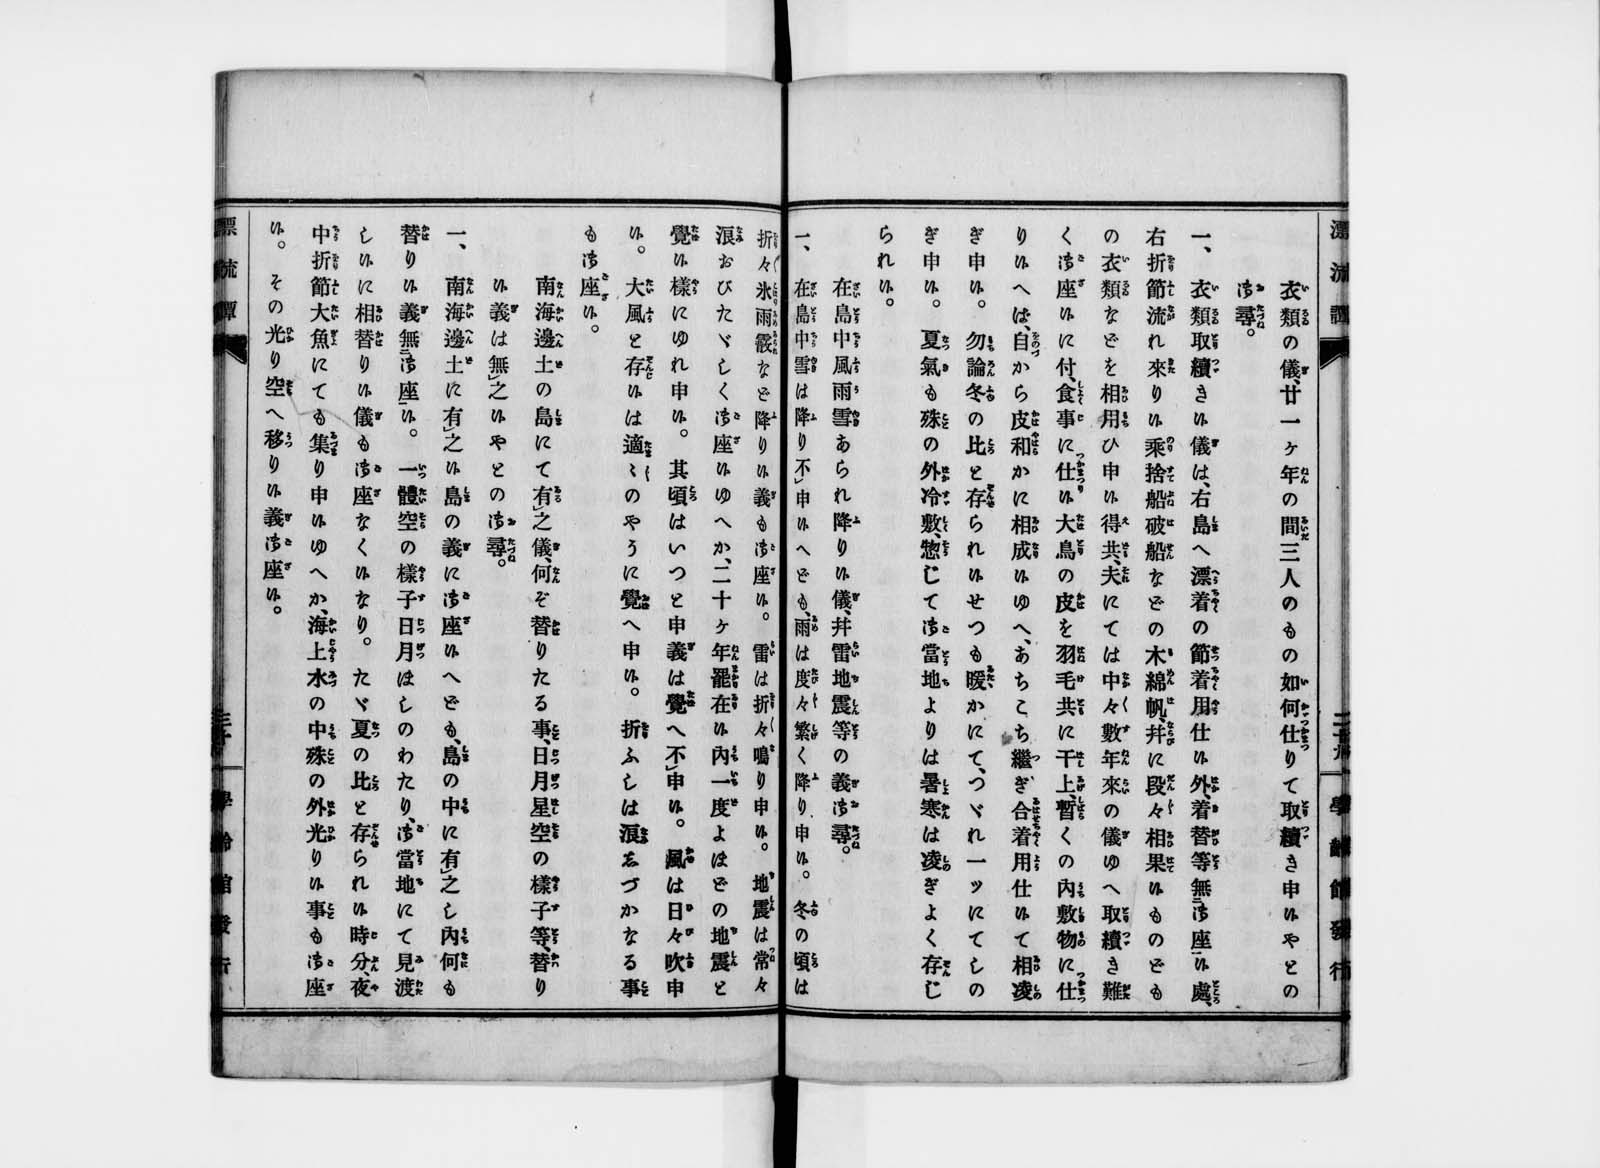 漂流譚
二十九
學齢館發行
衣類の儀、廿一ヶ年の間三人のもの如何仕りて取續き申候やとの
御尋。
一、衣類取續き候儀は、右島へ漂着の節着用仕候外、着替等無御座候處、
右折節流れ來り候乘捨船破船などの木綿帆、并に段々相果候ものども
の衣類などを相用ひ申候得共、夫にては中々數年來の儀ゆへ取續き難
く御座候に付、食事に仕候大鳥の皮を羽毛共に干上、暫くの内敷物に仕
り候へは、自から皮和かに相成候ゆへ、あちこち繼ぎ合着用仕候て相凌
ぎ申候。勿論冬の比と存られ候せつも暖かにて、つゞれ一ッにてしの
ぎ申候。夏氣も殊の外冷敷、惣じて御當地よりは暑寒は凌ぎよく存じ
られ候。
在島中風雨雪あられ降り候儀、并雷地震等の義御尋。
一、在島中雪は降り不申候へども、雨は度々繁く降り申候。冬の頃は
折々氷雨霰など降り候義も御座候。雷は折々鳴り申候。地震は常々
浪おびたゞしく御座候ゆへか、二十ヶ年罷在候内一度よほどの地震と
覺候樣にゆれ申候。其頃はいつと申義は覺へ不申候。風は日々吹申
候。大風と存候は適〻のやうに覺へ申候。折ふしは浪志づかなる事
も御座候。
南海邊土の島にて有之儀、何ぞ替りたる事、日月星空の樣子等、替り
候義は無之候やとの御尋。
一、南海邊土に有之候島の義に御座候へども、島の中に有之し内何も
替り候義無御座候。一體空の樣子日月ほしのわたり、御當地にて見渡
し候に相替り候儀も御座なく候なり。たゞ夏の比と存られ候時分、夜
中折節大魚にても集り申候ゆへか、海上水の中殊の外光り候事も御座
候。その光り空へ移り候義御座候。
漂流譚
三十
學齢館發行